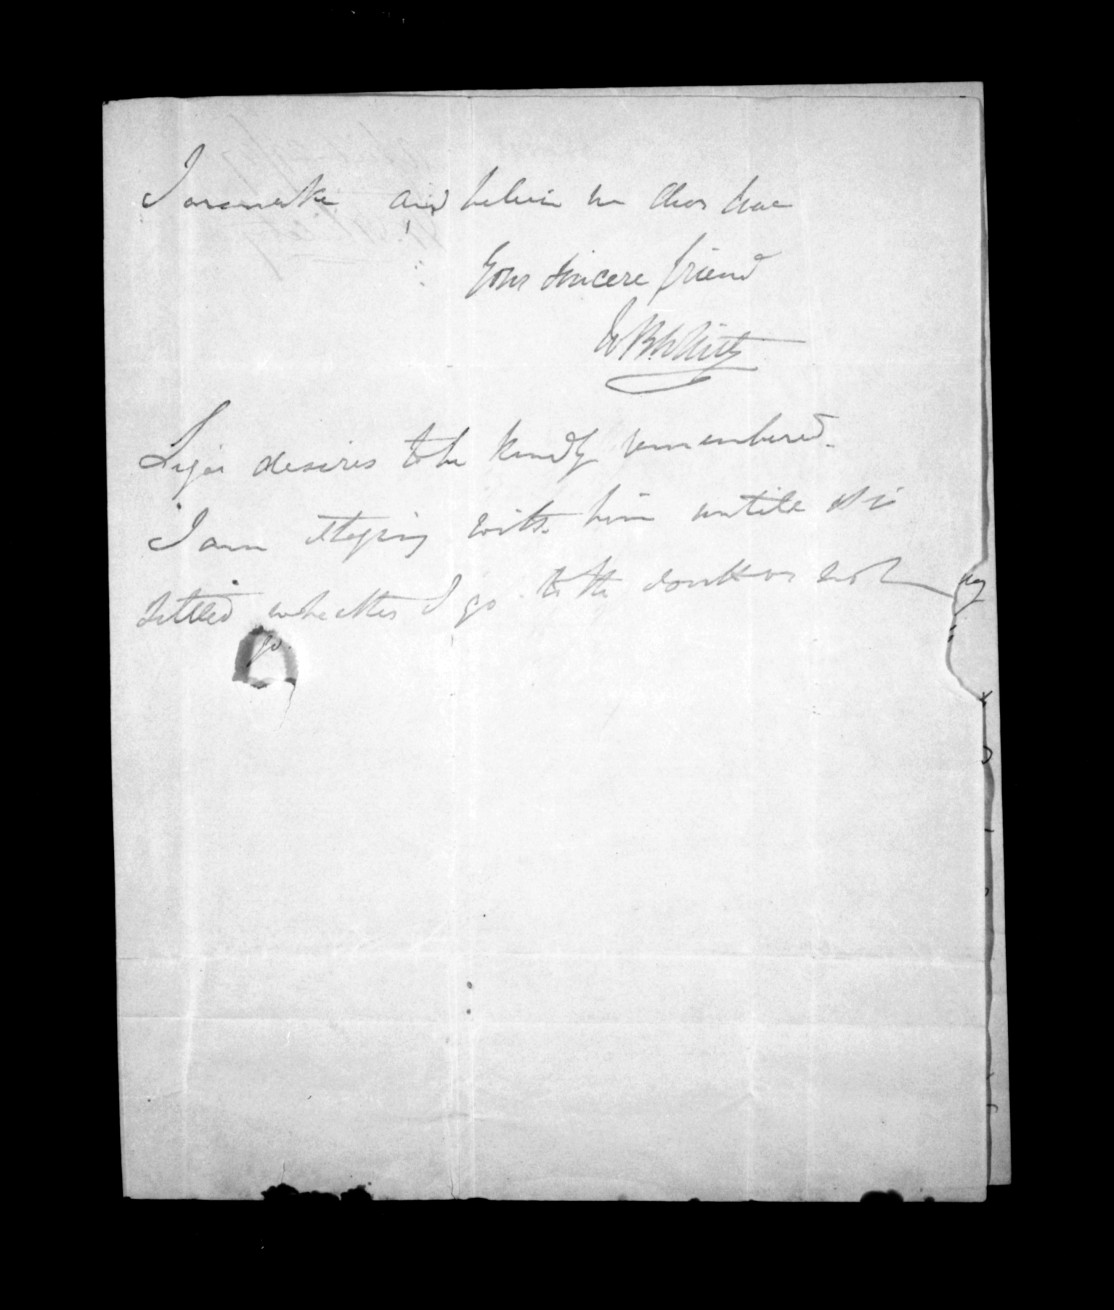 Taranaki and believe me dear Mac
Your sincere friend
Ligar desires to be kindly remembered.
I am staying with him until it is
settled whether I go to the South or not
go.